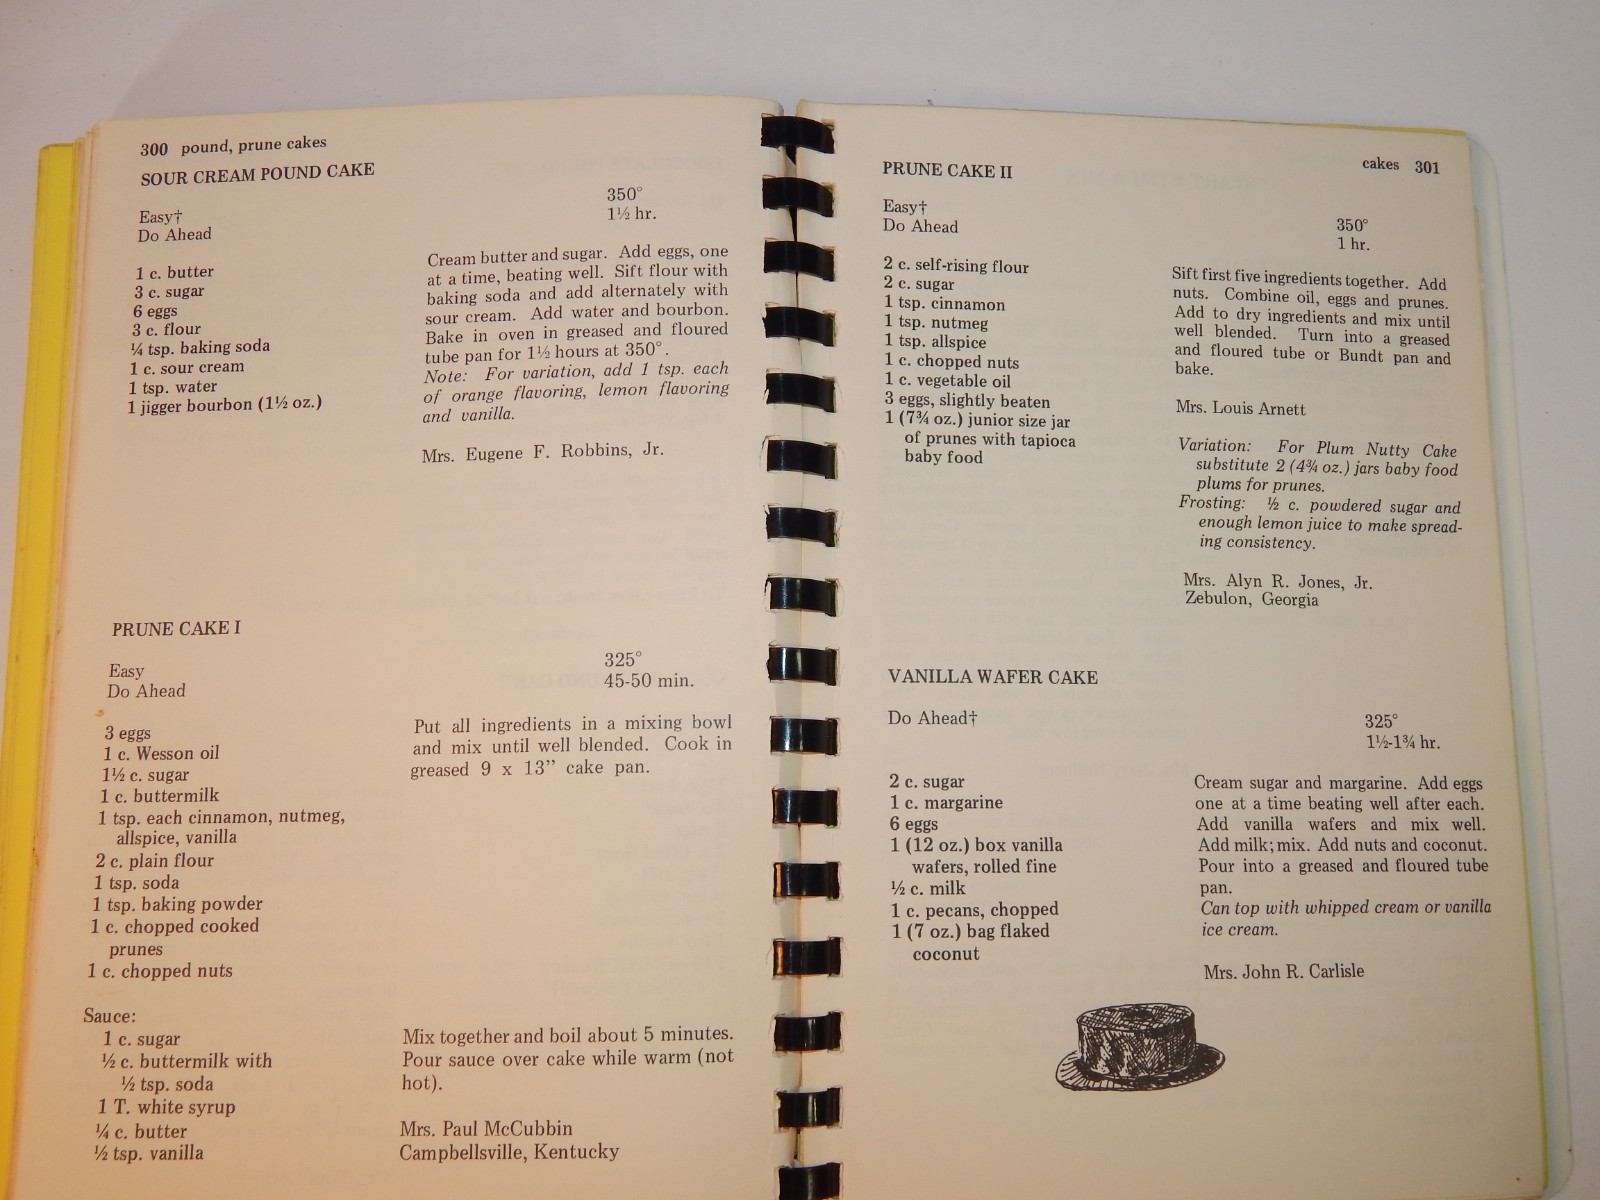 300 pound, prune cakes
SOUR CREAM POUND CAKE
350°
1½ hr.
Easy†
Do Ahead
1 c. butter
3 c. sugar
6 eggs
3 c. flour
¼ tsp. baking soda
1 c. sour cream
1 tsp. water
1 jigger bourbon (1½ oz.)
Cream butter and sugar. Add eggs, one
at a time, beating well. Sift flour with
baking soda and add alternately with
sour cream. Add water and bourbon.
Bake in oven in greased and floured
tube pan for 1½ hours at 350°.
Note: For variation, add 1 tsp. each
of orange flavoring, lemon flavoring
and vanilla.
Mrs. Eugene F. Robbins, Jr.
PRUNE CAKE I
Easy
Do Ahead
325°
45-50 min.
3 eggs
1 c. Wesson oil
1½ c. sugar
1 c. buttermilk
1 tsp. each cinnamon, nutmeg,
allspice, vanilla
2 c. plain flour
1 tsp. soda
1 tsp. baking powder
1 c. chopped cooked
prunes
1 c. chopped nuts
Put all ingredients in a mixing bowl
and mix until well blended. Cook in
greased 9 x 13” cake pan.
Sauce:
1 c. sugar
½ c. buttermilk with
½ tsp. soda
1 T. white syrup
¼ c. butter
½ tsp. vanilla
Mix together and boil about 5 minutes.
Pour sauce over cake while warm (not
hot).
Mrs. Paul McCubbin
Campbellsville, Kentucky
cakes 301
PRUNE CAKE II
Easy†
Do Ahead
350°
1 hr.
2 c. self-rising flour
2 c. sugar
1 tsp. cinnamon
1 tsp. nutmeg
1 tsp. allspice
1 c. chopped nuts
1 c. vegetable oil
3 eggs, slightly beaten
1 (7¾ oz.) junior size jar
of prunes with tapioca
baby food
Sift first five ingredients together. Add
nuts. Combine oil, eggs and prunes.
Add to dry ingredients and mix until
well blended. Turn into a greased
and floured tube or Bundt pan and
bake.
Mrs. Louis Arnett
Variation: For Plum Nutty Cake
substitute 2 (4¾ oz.) jars baby food
plums for prunes.
Frosting: ½ c. powdered sugar and
enough lemon juice to make spread-
ing consistency.
Mrs. Alyn R. Jones, Jr.
Zebulon, Georgia
VANILLA WAFER CAKE
Do Ahead†
325°
1½-1¾ hr.
2 c. sugar
1 c. margarine
6 eggs
1 (12 oz.) box vanilla
wafers, rolled fine
½ c. milk
1 c. pecans, chopped
1 (7 oz.) bag flaked
coconut
Cream sugar and margarine. Add eggs
one at a time beating well after each.
Add vanilla wafers and mix well.
Add milk; mix. Add nuts and coconut.
Pour into a greased and floured tube
pan.
Can top with whipped cream or vanilla
ice cream.
Mrs. John R. Carlisle